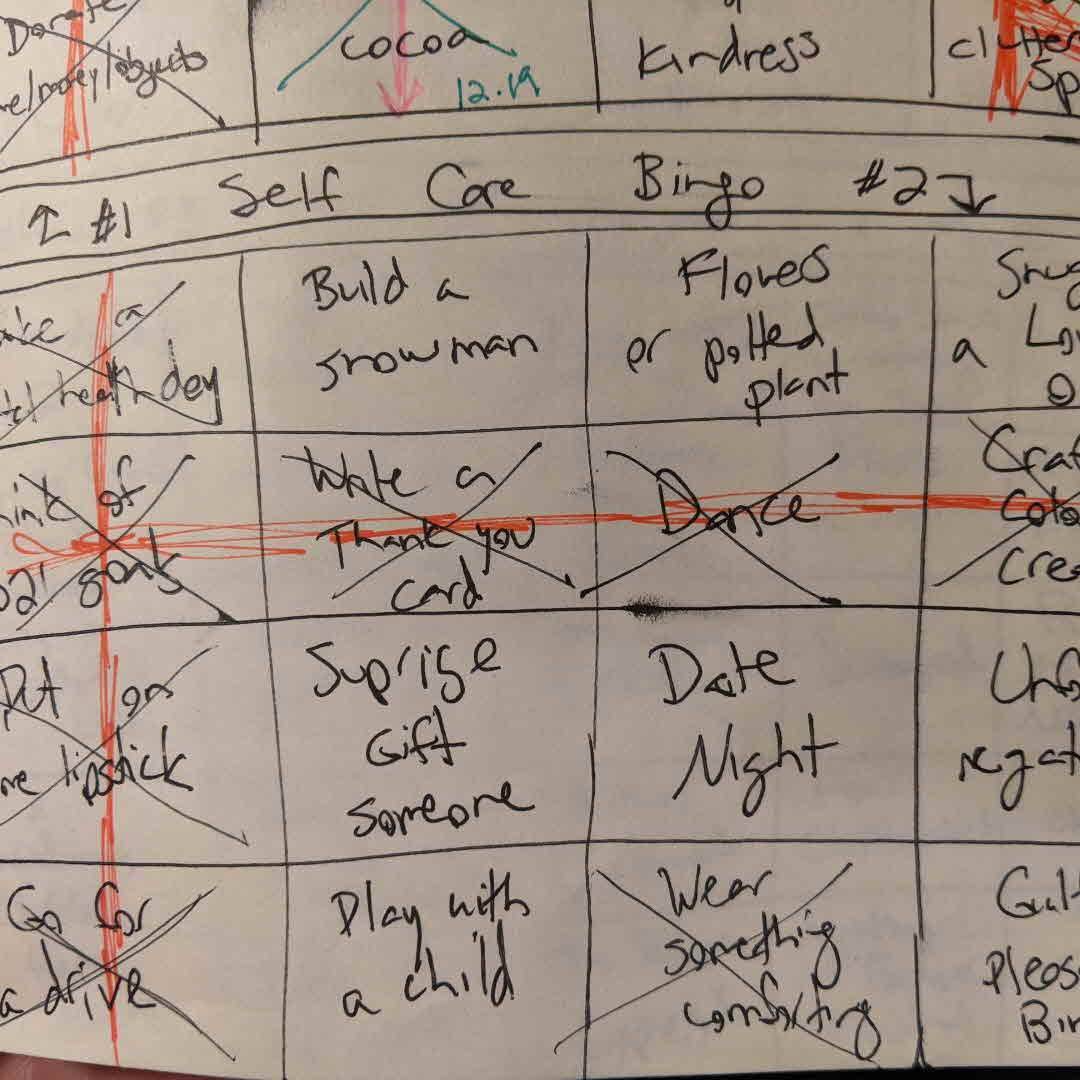 Donate
cocoa
Kindness
clutter
e/money/objects
12.19
Sp
↑ #1 Self Care Bingo #2
ake a
tal health day
Build a
snowman
Flowers
or potted
plant
Snug
a Lov
O
ink of
021 goals
Write a
Thank you
card
Dance
Craf
Colo
Crea
Put on
me lipstick
Suprise
Gift
someone
Date
Night
Unfo
negat
Go for
a drive
Play with
a child
Wear
something
comforting
Guilt
pleas
Bin